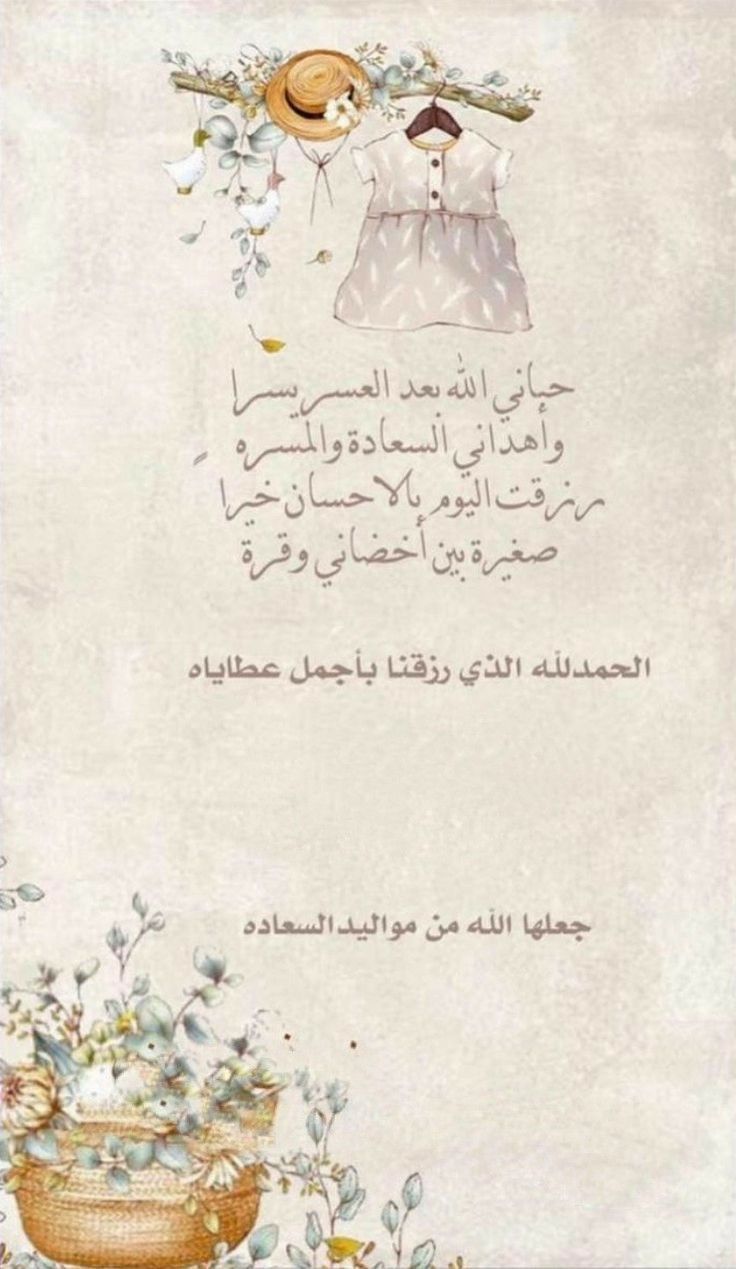 حباني الله بعد العسر يسرا
وأهداني السعادة والمسره
رزقت اليوم بالاحسان خيرا
صغيرة بين أخضاني وقرة
الحمدلله الذي رزقنا بأجمل عطاياه
جعلها الله من مواليدالسعاده